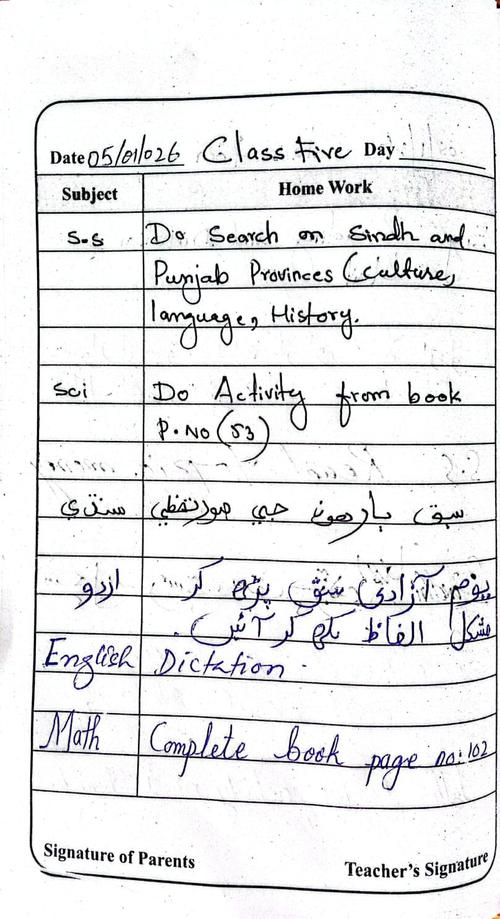 Date 05/01/026 Class Five Day
Subject Home Work
S.S Do Search on Sindh and
Punjab Provinces (culture,
language, History.
Sci Do Activity from book
P.No (53)
سنڌي سبق يارهون جي صورتخطي
اردو یوم آزادی سبق پڑھ کر
مشکل الفاظ لکھ کر آئیں۔
English Dictation.
Math Complete book page no: 102
Signature of Parents Teacher's Signature